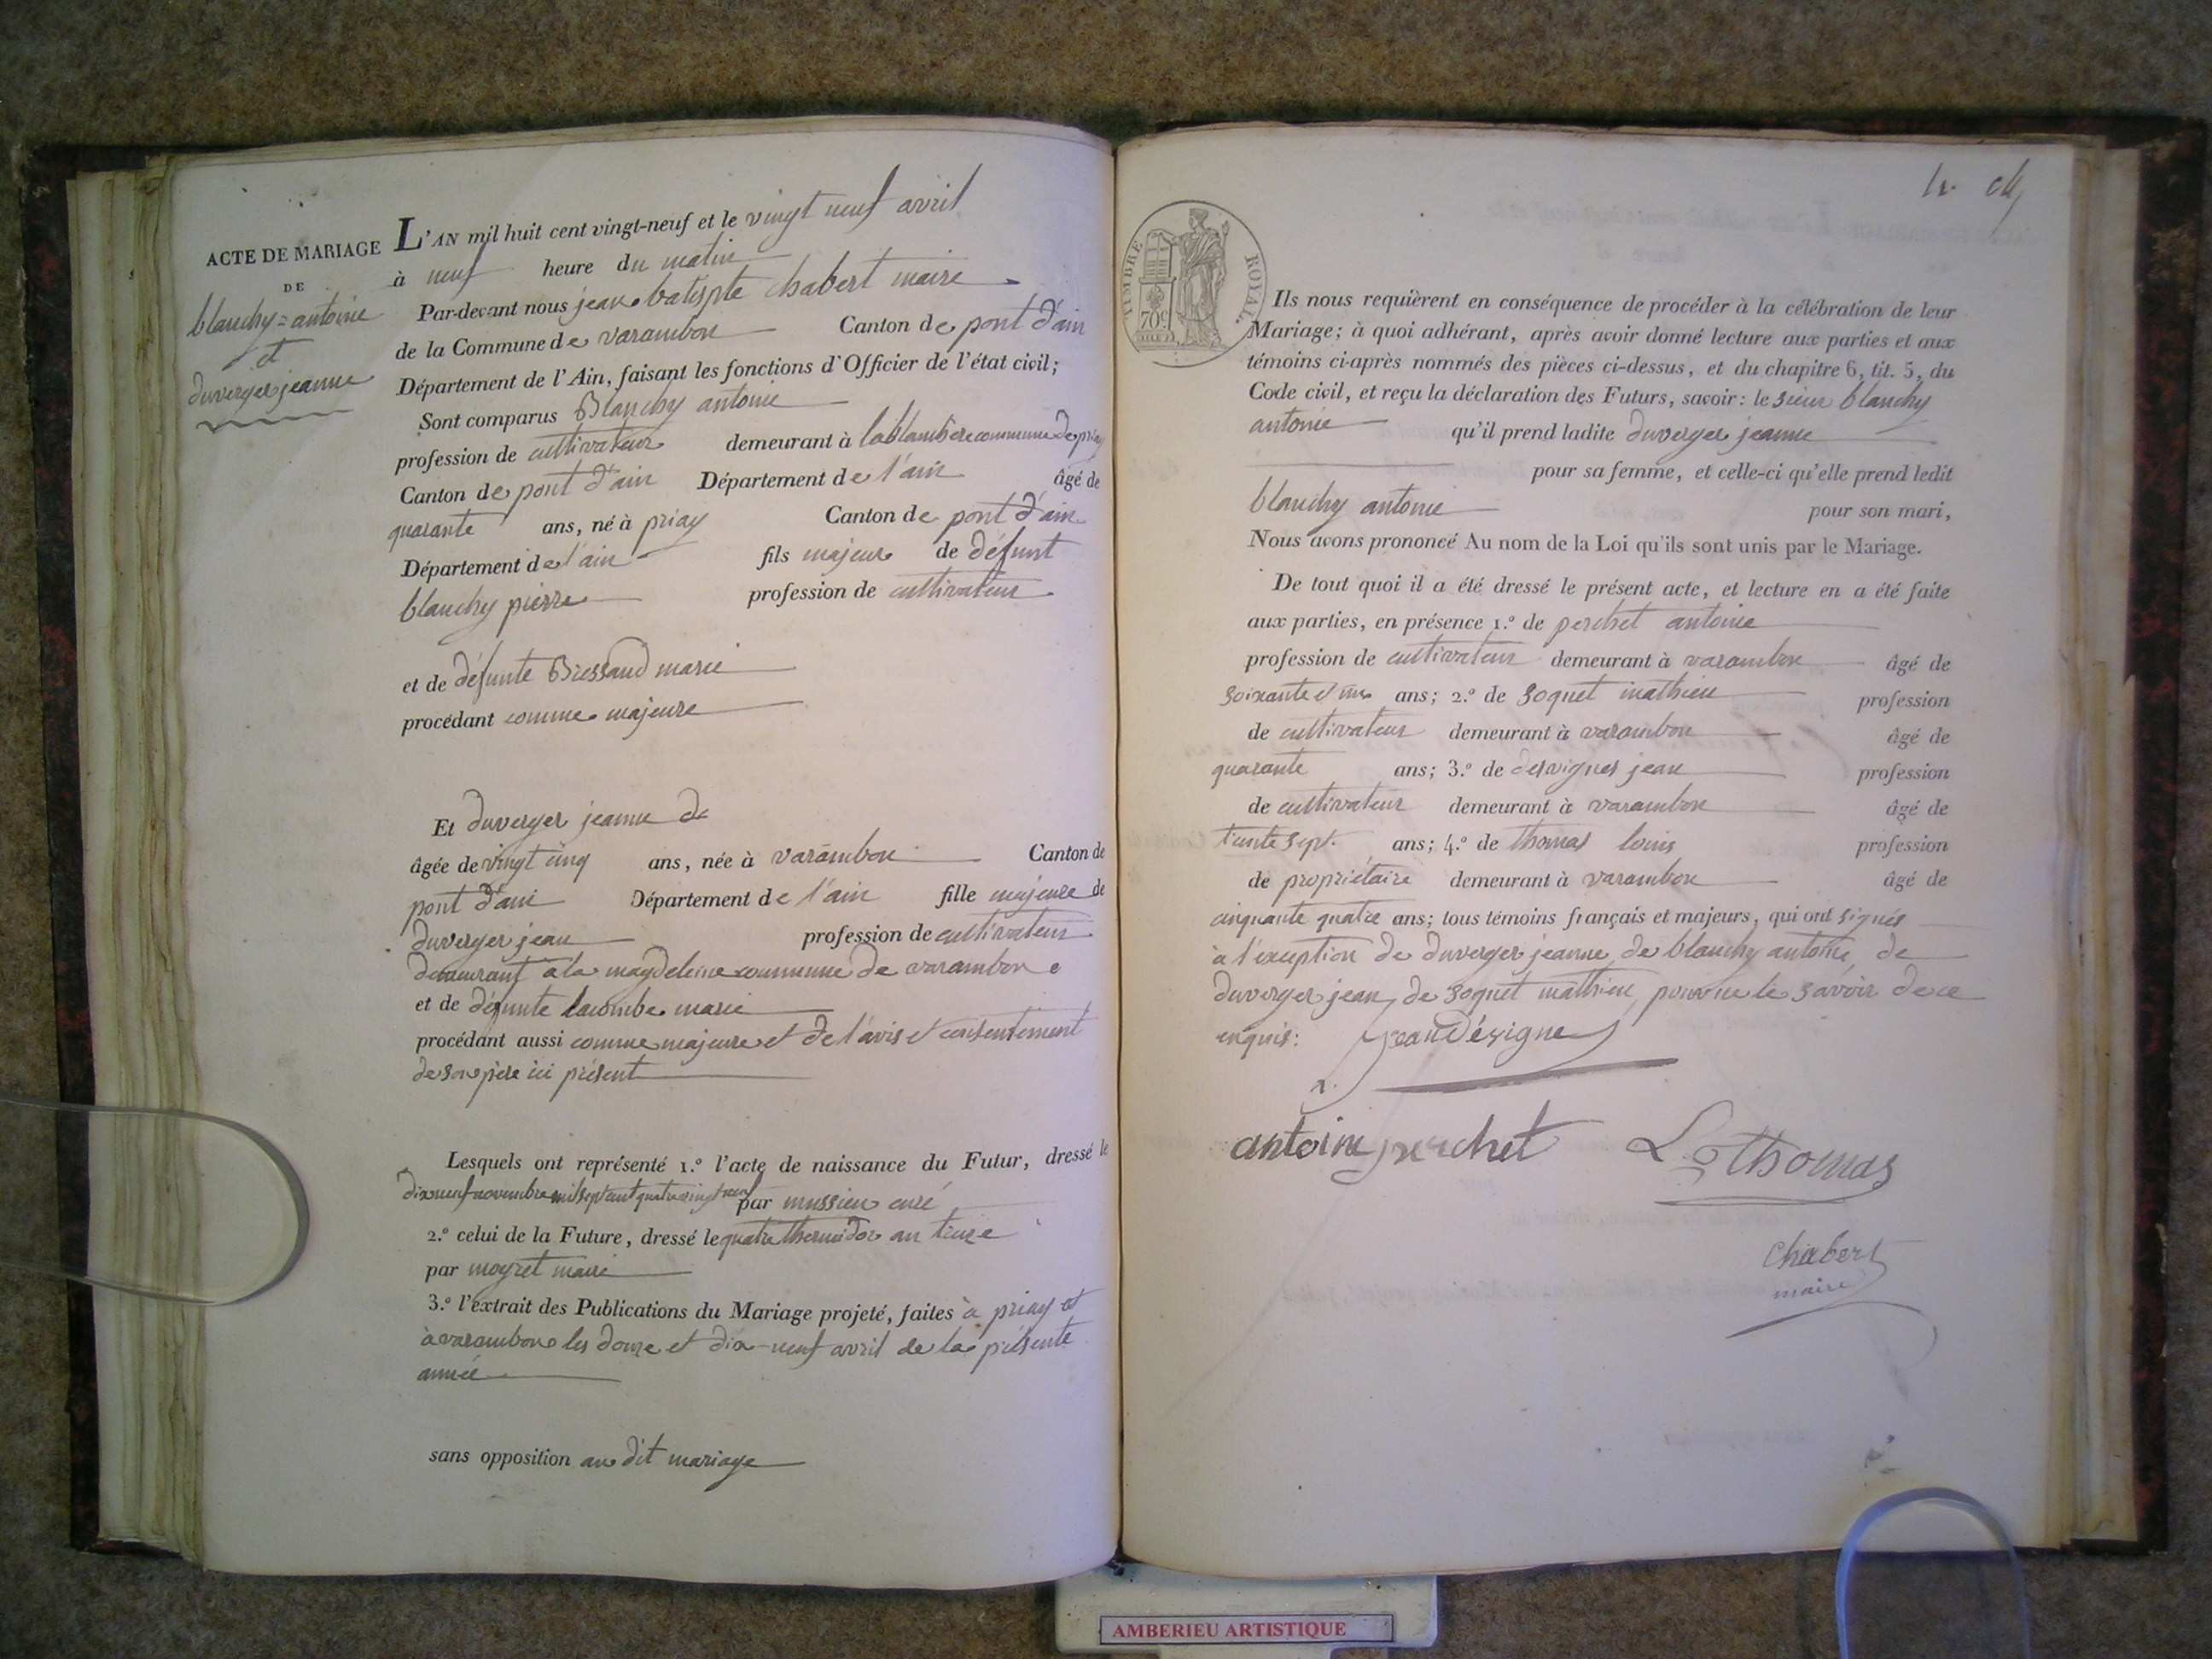 ACTE DE MARIAGE
DE
blanchy = antoine
et
duverger jeanne
L'AN mil huit cent vingt-neuf et le vingt neuf avril
à neuf heure du matin
Par-devant nous jean batispte chabert maire
de la Commune de varambon Canton de pont d'ain
Département de l'Ain, faisant les fonctions d'Officier de l'état civil;
Sont comparus Blanchy antoine
profession de cultivateur demeurant à commune de priay
Canton de pont d'ain Département de l'ain âgé de
quarante ans, né à priay Canton de pont d'ain
Département de l'ain fils majeur de défunt
blanchy pierre profession de cultivateur
et de défunte Bressaud marie
procédant comme majeure
Et duverger jeanne de
âgée de vingt cinq ans, née à varambon Canton de
pont d'ain Département de l'ain fille majeure de
duverger jean profession de cultivateur
demeurant a la magdeleine commune de varambon
et de défunte lacombe marie
procédant aussi comme majeure et de l'avis et consentement
de son père ici présent
Lesquels ont représenté 1.º l'acte de naissance du Futur, dressé le
dix neuf novembre mil sept cent quatre vingt neuf par mussieu curé
2.º celui de la Future, dressé le quatre thermidor an treize
par moyret maire
3.º l'extrait des Publications du Mariage projeté, faites à priay et
à varambon les douze et dix-neuf avril de la présente
année
sans opposition au dit mariage
TIMBRE ROYAL
70 c
Ils nous requièrent en conséquence de procéder à la célébration de leur
Mariage; à quoi adhérant, après avoir donné lecture aux parties et aux
témoins ci-après nommés des pièces ci-dessus, et du chapitre 6, tit. 5, du
Code civil, et reçu la déclaration des Futurs, savoir: le sieur blanchy
antoine qu'il prend ladite duverger jeanne
pour sa femme, et celle-ci qu'elle prend ledit
blanchy antoine pour son mari,
Nous avons prononcé Au nom de la Loi qu'ils sont unis par le Mariage.
De tout quoi il a été dressé le présent acte, et lecture en a été faite
aux parties, en présence 1.º de perchet antoine
profession de cultivateur demeurant à varambon âgé de
soixante et un ans; 2.º de soquet mathieu profession
de cultivateur demeurant à varambon âgé de
quarante ans; 3.º de desvignes jean profession
de cultivateur demeurant à varambon âgé de
trente sept ans; 4.º de thomas louis profession
de propriétaire demeurant à varambon âgé de
cinquante quatre ans; tous témoins français et majeurs, qui ont signés
à l'exception de duverger jeanne, de blanchy antoine, de
duverger jean, de soquet mathieu, pour ne le savoir de ce
enquis:
jean Désigne
antoine perchet
L Thomas
Chabert
maire
AMBERIEU ARTISTIQUE